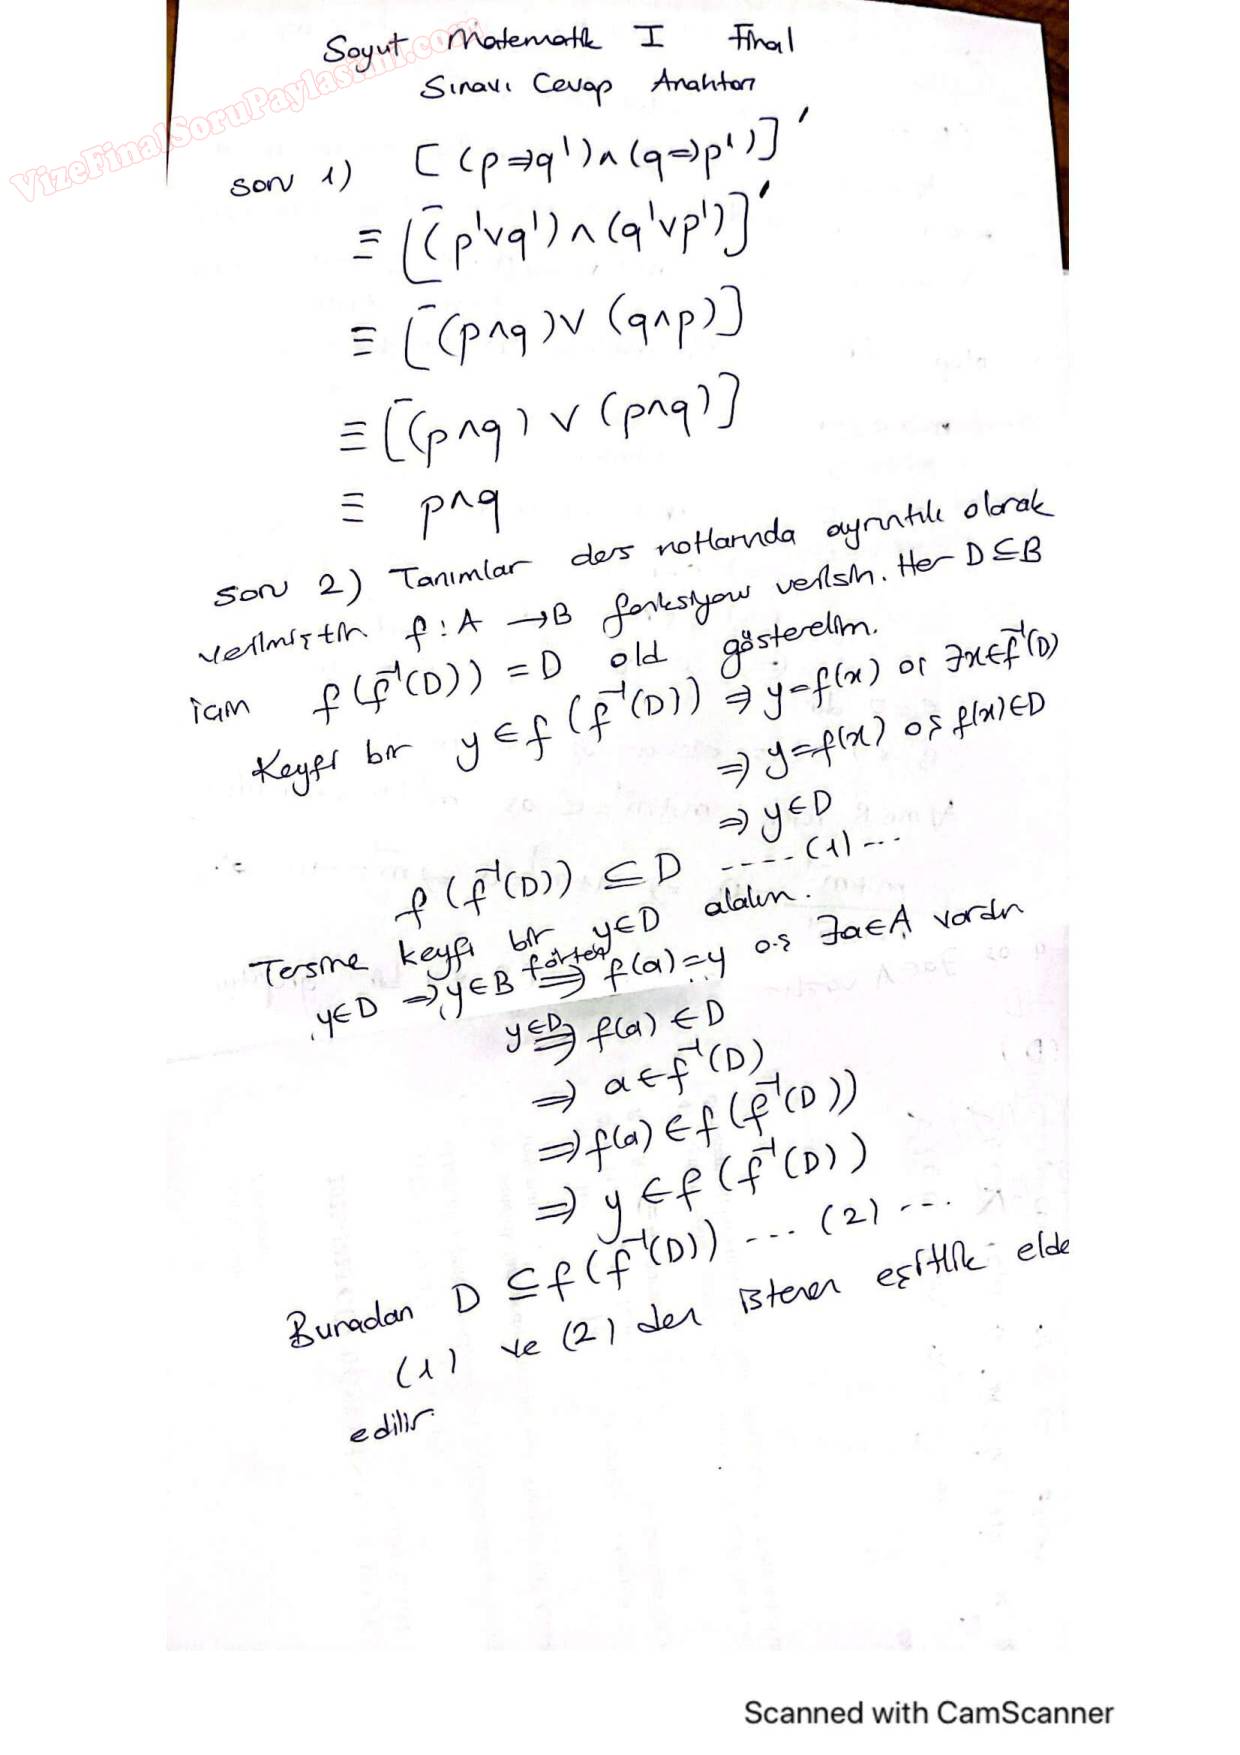 VizeFinalSoruPaylasimi.com
Soyut Matematik I Final
Sınavı Cevap Anahtarı
soru 1) [(p⇒q')∧(q⇒p')]'
≡ [(p'∨q')∧(q'∨p')]'
≡ [(p∧q)∨(q∧p)]
≡ [(p∧q)∨(p∧q)]
≡ p∧q
soru 2) Tanımlar ders notlarında ayrıntılı olarak
verilmiştir f:A→B fonksiyonu verilsin. Her D⊆B
için f(f⁻¹(D))=D old gösterelim.
Keyfi bir y∈f(f⁻¹(D)) ⇒ y=f(x) o ∃x∈f⁻¹(D)
⇒ y=f(x) oş f(x)∈D
⇒ y∈D
f(f⁻¹(D)) ⊆ D ----(1)---
Tersine keyfi bir y∈D alalım.
y∈D ⇒ y∈B örten⇒ f(a)=y o.ş ∃a∈A vardır
y∈D⇒ f(a)∈D
⇒ a∈f⁻¹(D)
⇒ f(a)∈f(f⁻¹(D))
⇒ y∈f(f⁻¹(D))
Buradan D⊆f(f⁻¹(D)) ---(2)---
(1) ve (2) den istenen eşitlik elde
edilir.
Scanned with CamScanner